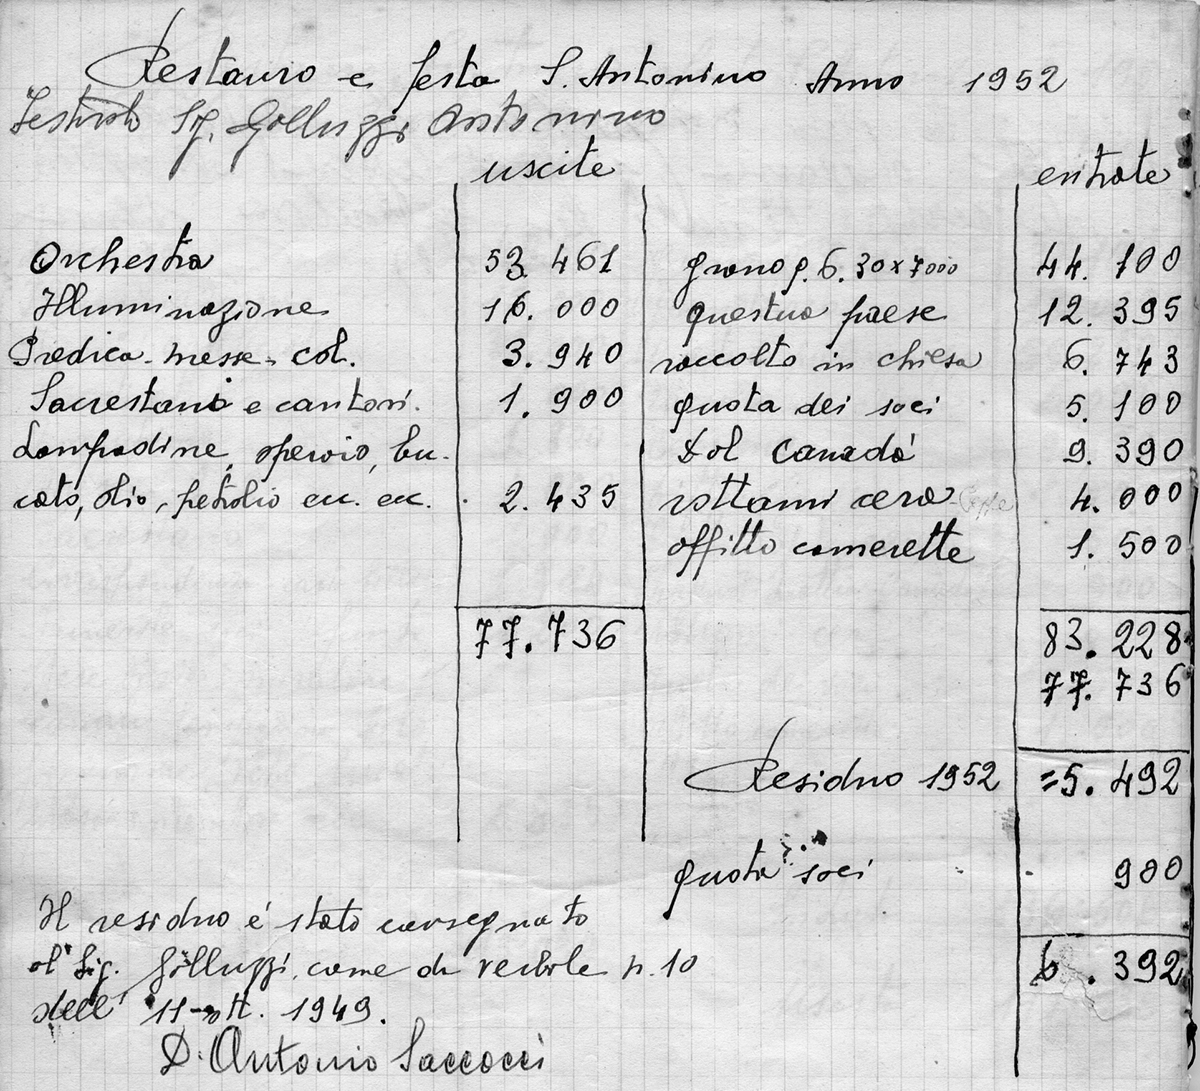 Restauro e festa S. Antonino Anno 1952
Sig. Golluzzi Antonino
uscite entrate
Orchestra 53.461 grano q. 6.30x7000 44.100
Illuminazione 16.000 questua paese 12.395
Predica-messe-col. 3.940 raccolto in chiesa 6.743
Sacrestano e cantori. 1.900 quota dei soci 5.100
Lampadine, sperojo, bu- dol Canadá 9.390
cato, olio, petrolio ecc. ecc. 2.435 rottami cera 4.000
affitto camerette 1.500
77.736 83.228
77.736
Residuo 1952 =5.492
quota soci 900
Il residuo é stato consegnato 6.392
al Sig. Golluzzi, come da verbale n. 10
dell' 11-ott. 1949.
D. Antonio Saccocci